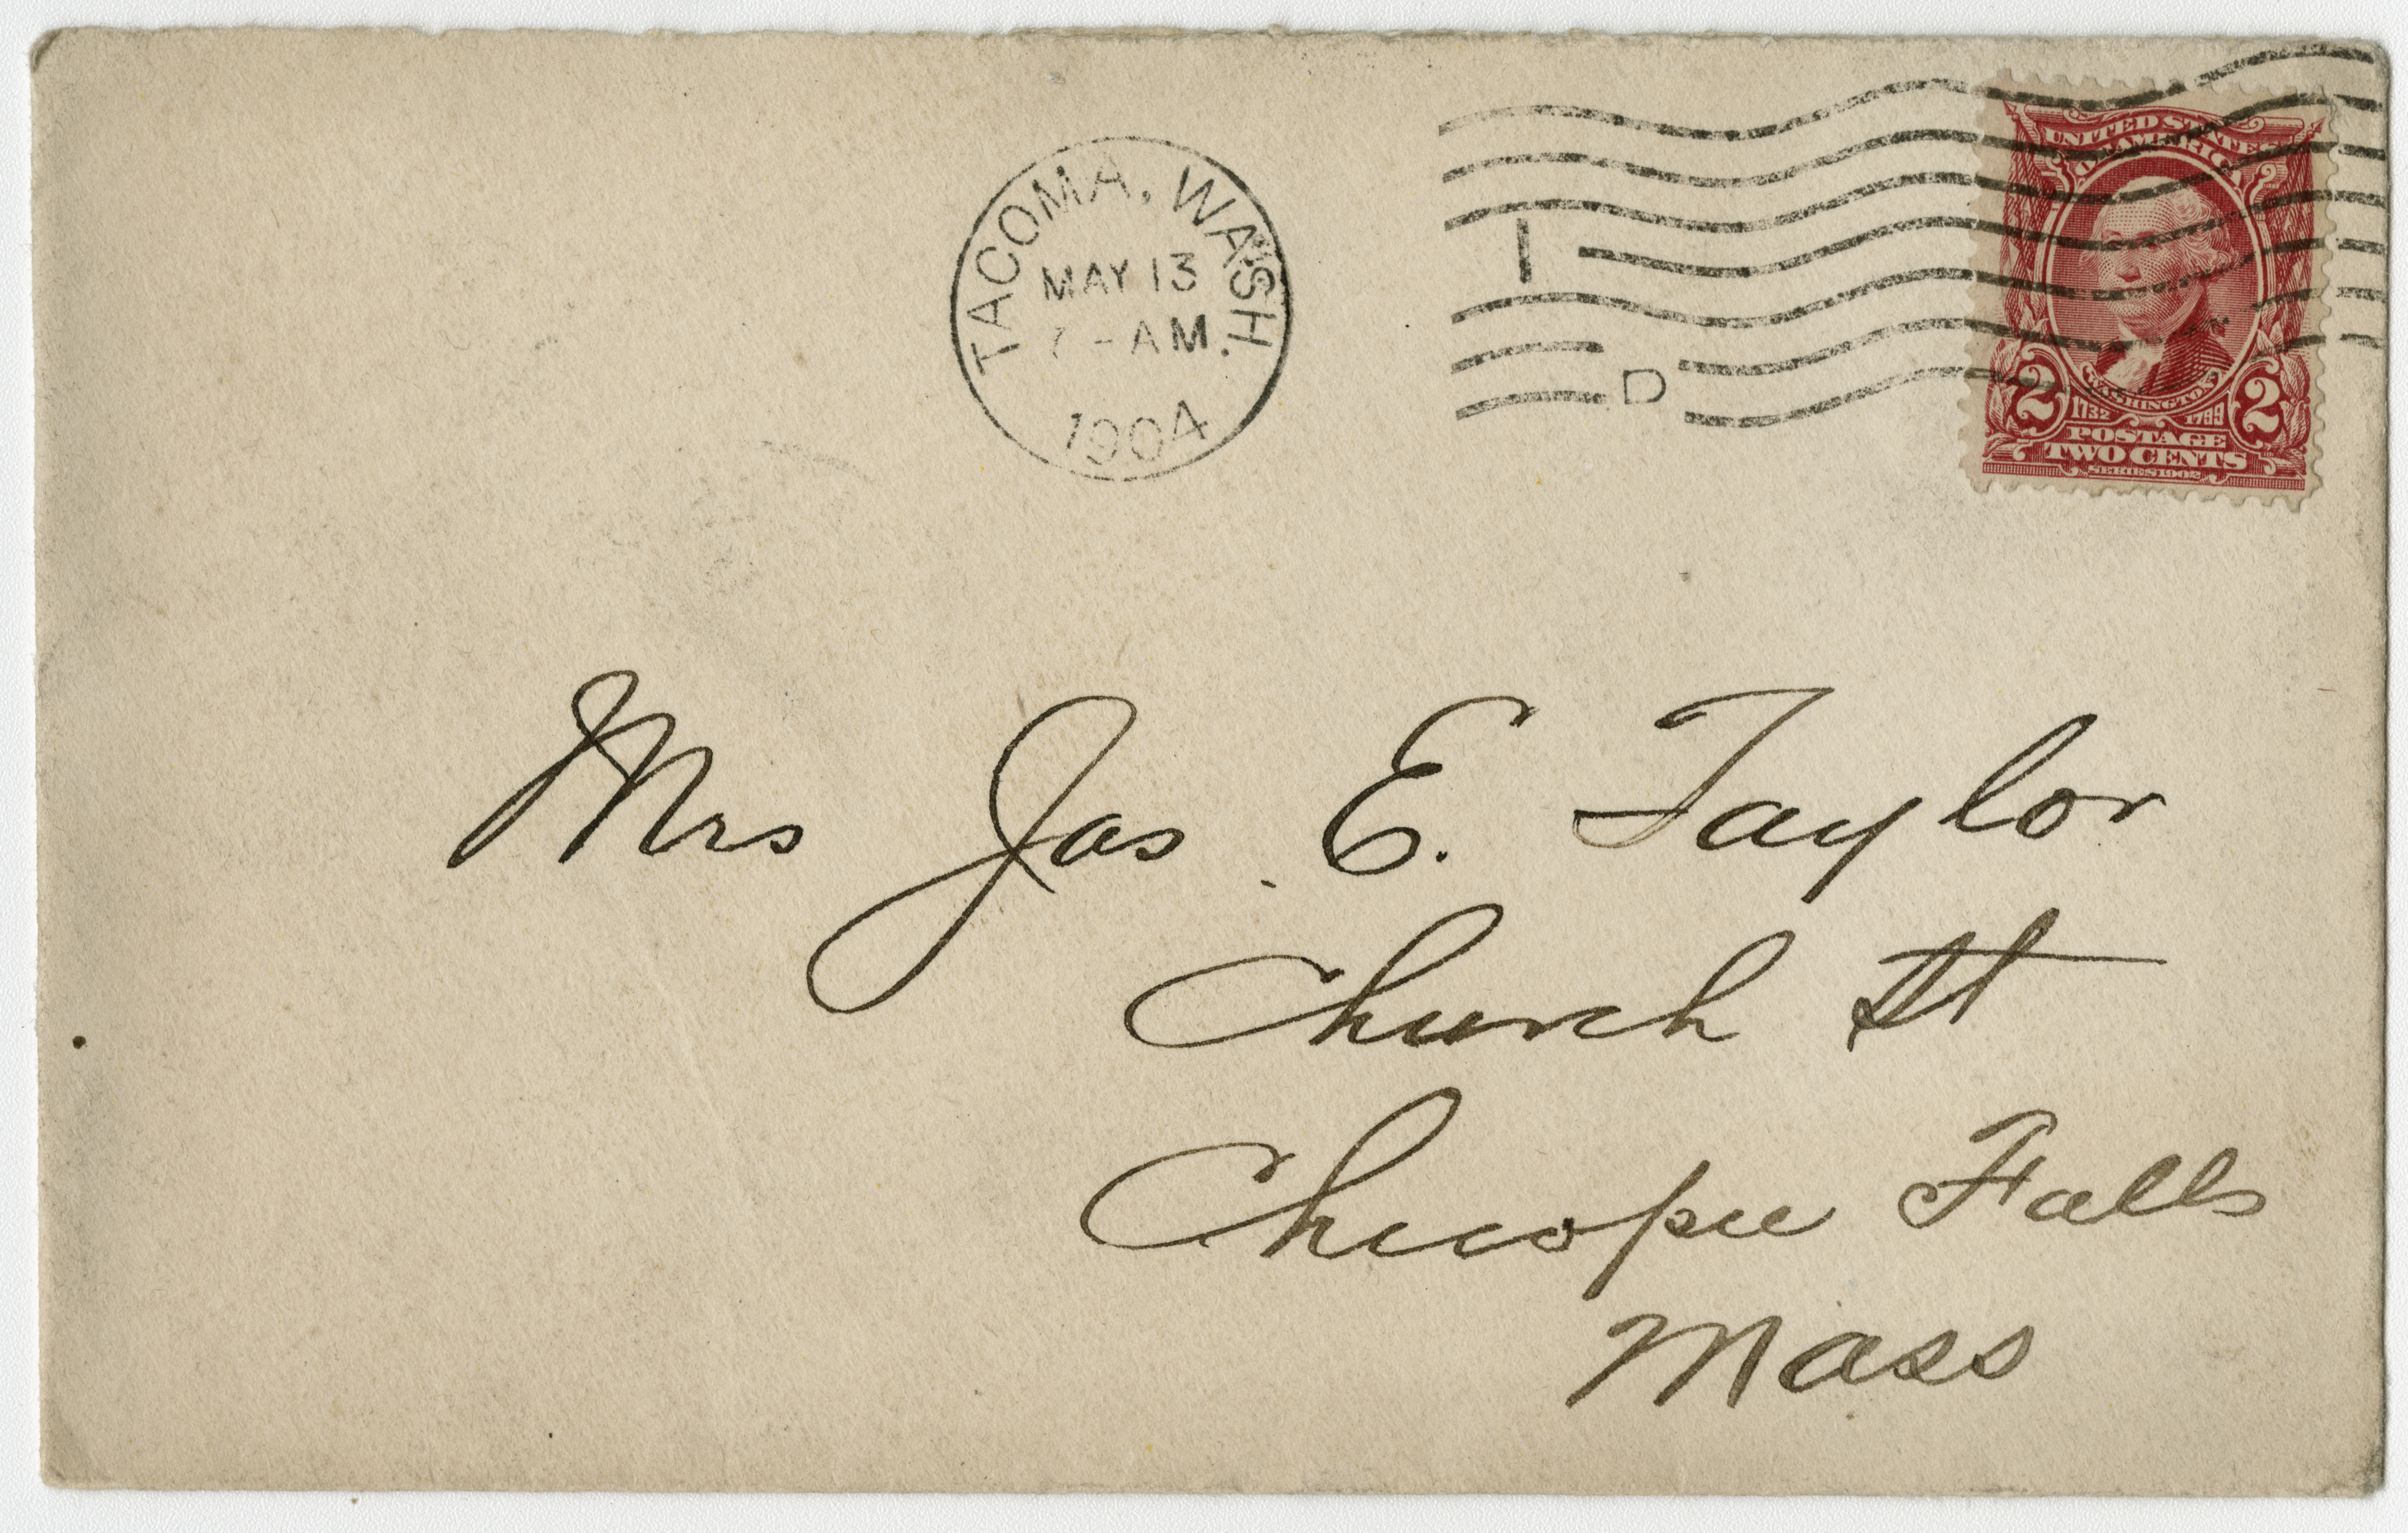 TACOMA, WASH.
MAY 13
- AM
1904
I
D
UNITED STATES
OF AMERICA
2 2
WASHINGTON
1732 1799
POSTAGE
TWO CENTS
SERIES 1902
Mrs Jas. E. Taylor
Church St
Chicopee Falls
Mass